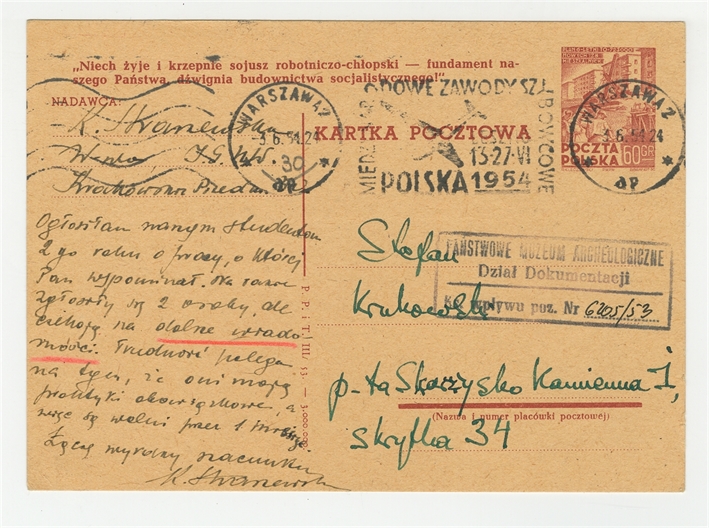 „Niech żyje i krzepnie sojusz robotniczo-chłopski — fundament na-
szego Państwa, dźwignia budownictwa socjalistycznego!"
NADAWCA:
K.
Krakowskie
WARSZAWA 2
3.6.54.24
ap
DOWE ZAWODY SZYBOWCOWE
13-27-VI
POLSKA 1954
WARSZAWA 2
3.6.54.24
ap
POCZTA
POLSKA
60 GR
KARTKA POCZTOWA
Ogłosiłam naszym studentom
2-go roku o pracy, o której
Pan wspominał. Na razie
zgłosiły się 2 osoby, ale
czekają na dalsze wiado
mości. Trudność polega
na tym, że oni mają
praktyki obowiązkowe, a
więc są wolni przez 1 miesiąc
Łączę wyrazy szacunku
K.
P. P. T.
III/53 — 3.000.000
Stefan
Krukowski
p-ta Skarżysko Kamienna I,
(Nazwa i numer placówki pocztowej)
skrytka 34
PAŃSTWOWE MUZEUM ARCHEOLOGICZNE
Dział Dokumentacji
wpływu poz. Nr 6205/53